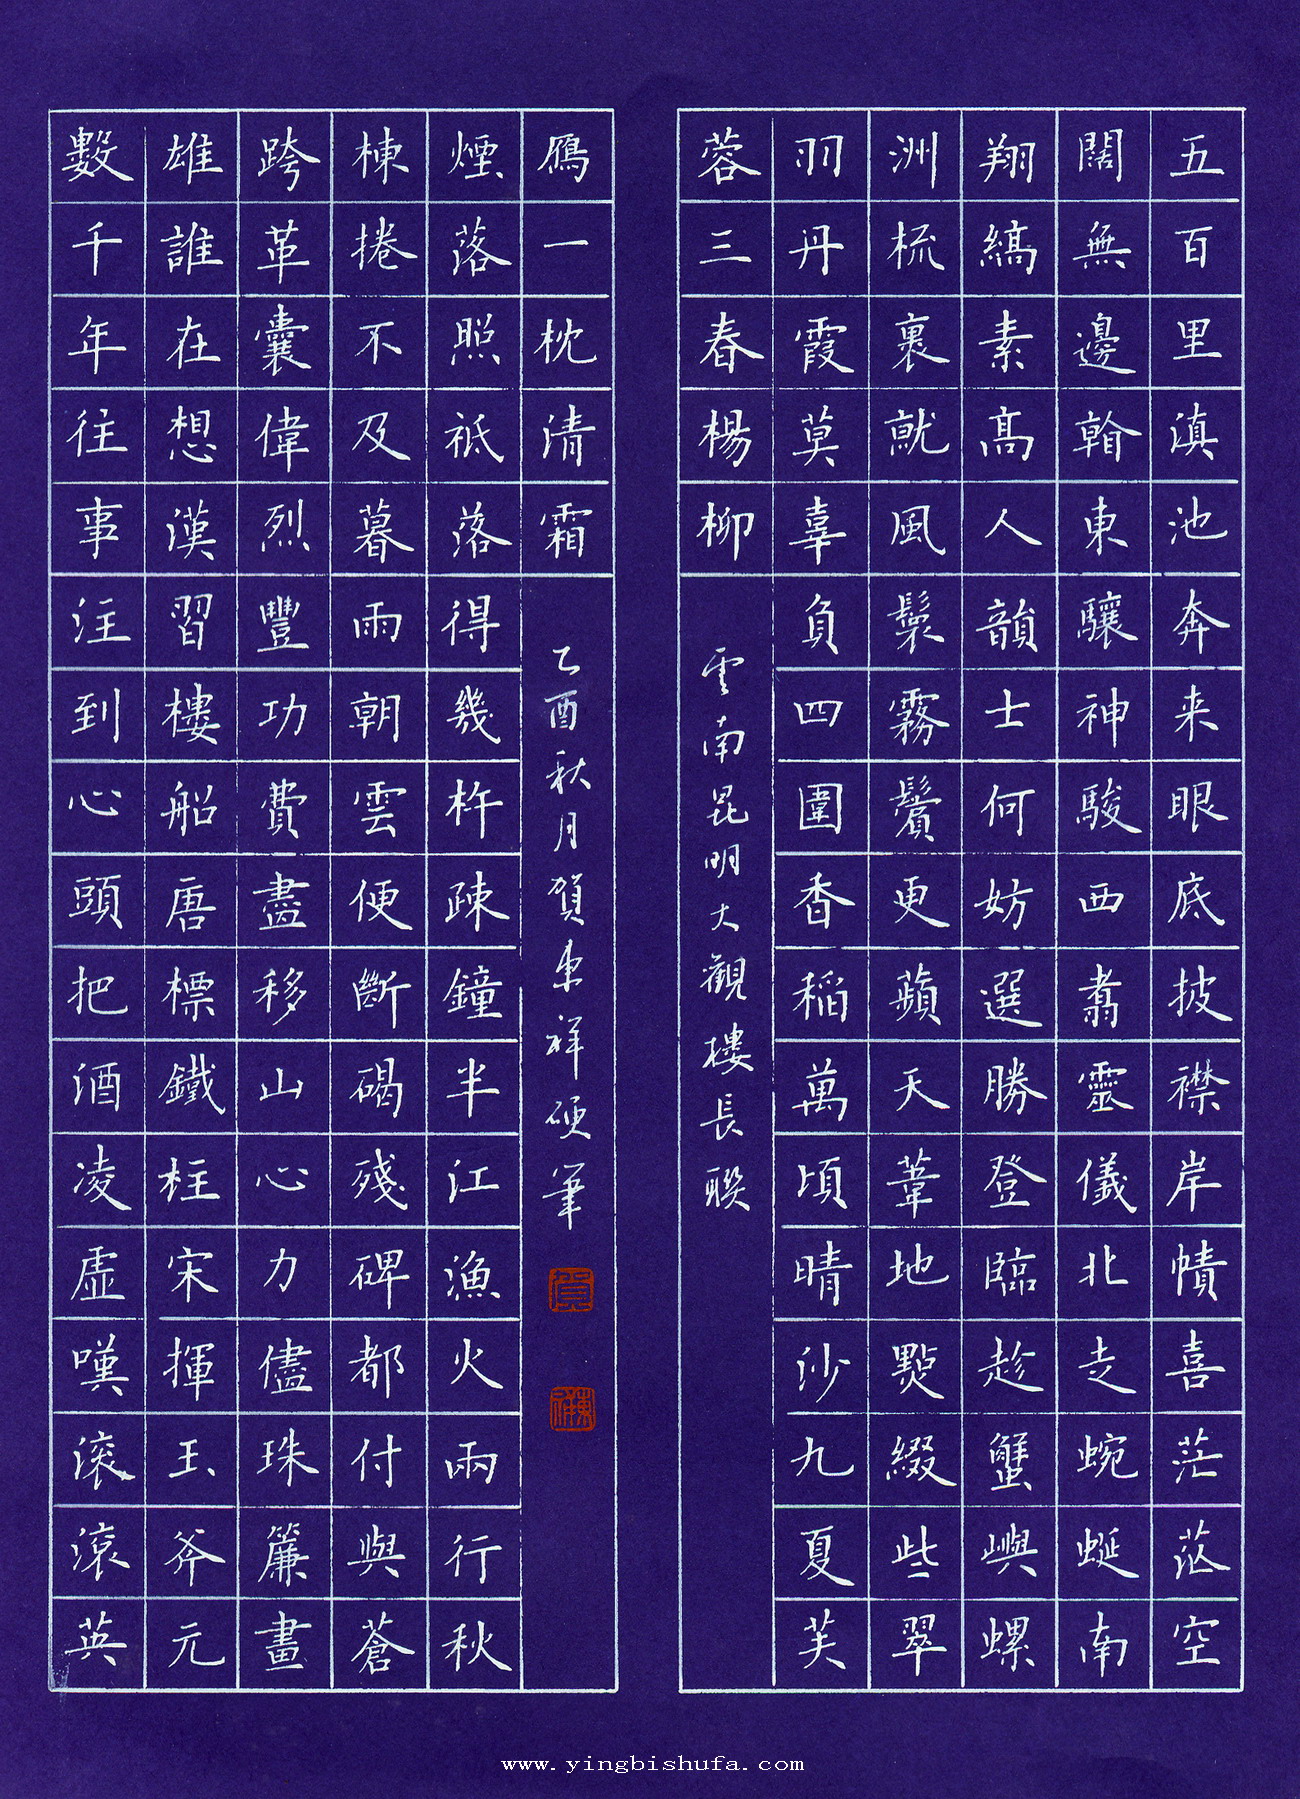 五百里滇池奔来眼底披襟岸幘喜茫茫空
闊無邊看東驤神駿西翥靈儀北走蜿蜒南
翔縞素髙人韻士何妨選勝登臨趁蟹嶼螺
洲梳裹就風鬟霧鬢更蘋天葦地點綴些翠
羽丹霞莫辜負四圍香稻萬頃晴沙九夏芙
蓉三春楊柳
雲南昆明大觀樓長聯
數千年往事注到心頭把酒凌虛嘆滾滾英
雄誰在想漢習樓船唐標鐵柱宋揮玉斧元
跨革囊偉烈豐功費盡移山心力儘珠簾畫
棟捲不及暮雨朝雲便斷碣殘碑都付與蒼
煙落照祇落得幾杵疎鐘半江漁火兩行秋
鴈一枕清霜
乙酉秋月賀東祥硬筆
賀
東祥
www.yingbishufa.com